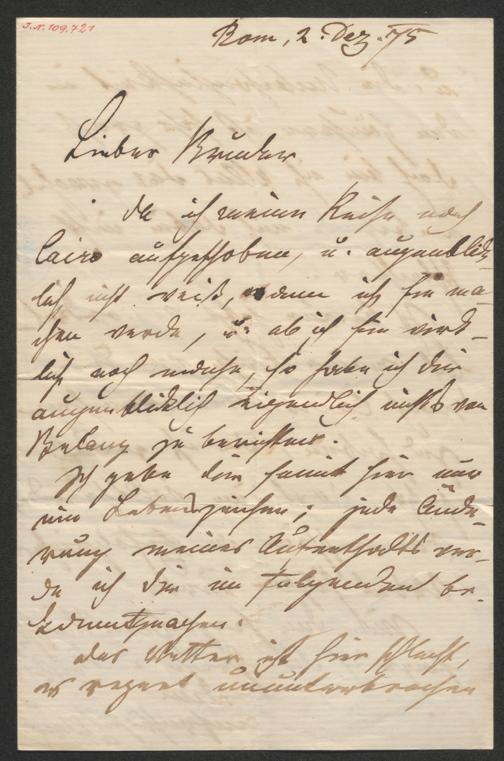 I.N. 109.721
Rom, 2. Dez. 75
Lieber Bruder
Da ich meine Reise nach
Cairo aufgeschoben, u. augenblik-
lich nicht weiß, wann ich sie ma-
chen werde, u. ob ich sie wirk-
lich noch mache, so habe ich dir
augenbliklich eigendlich nichts von
Belang zu berichten.
Ich gebe dir somit hier nur
ein Lebenszeichen; jede Ände-
rung meines Aufenthalts wer-
de ich dir im Folgenden be-
kanntmachen.
Das Wetter ist hier schlecht,
es regnet ununterbrochen